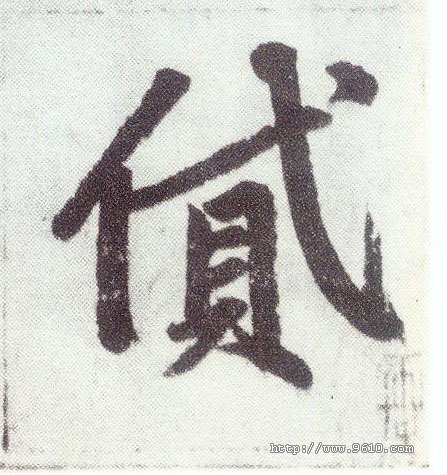 貸
http://www.9610.com